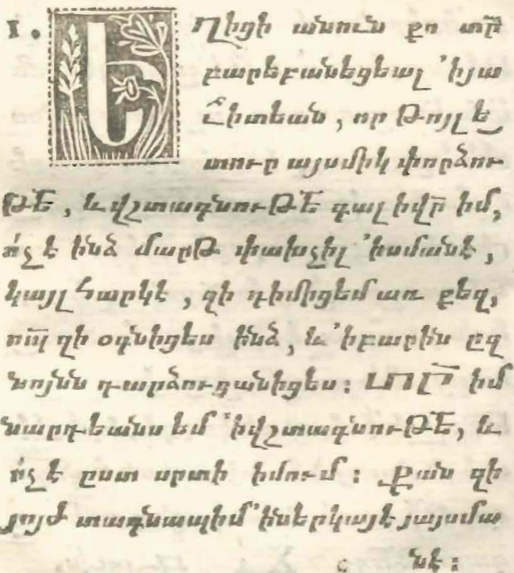 1. Եղիցի անուն քո տր̃
բարեբանեցեալ ՚ի յա
ւիտեան , որ թոյլ ե
տուր այսմիկ փորձու
թե̃ , և վշտագնութե̃ գալ ի վր̃ իմ,
ո՛չ է ինձ մարթ փախչիլ ՚ի սմանէ ,
կայլ հարկէ , զի դիմիցեմ առ քեզ,
որպ̃ զի օգնիցես ինձ, և ՚ի բարին ըզ
նոյնն դարձուցանիցես : իմ
նարդեանս եմ ՚ի վշտագնութե̃, և
ո՛չ է ըստ սրտի իմում : Քան զի
յոյժ տագնապիմ ՚ի ներկայէ յայսմա
նէ :